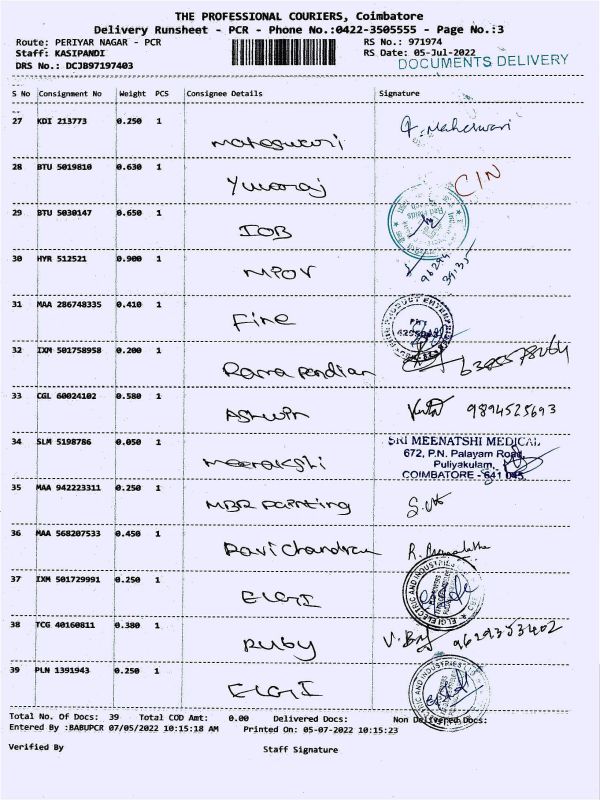 THE PROFESSIONAL COURIERS, Coimbatore
Delivery Runsheet - PCR - Phone No.:0422-3505555 - Page No.:3
Route: PERIYAR NAGAR - PCR
RS No.: 971974
Staff: KASIPANDI
RS Date: 05-Jul-2022
DRS No.: DCJB97197403
DOCUMENTS DELIVERY
S No Consignment No Weight PCS Consignee Details Signature
27 KDI 213773 0.250 1
Maheswari
28 BTU 5019810 0.630 1
Yuvaraj C/N
29 BTU 5030147 0.650 1
IOB
30 HYR 512521 0.900 1
31 MAA 286748335 0.410 1
Fine
32 IXM 501758958 0.200 1
Rama pandian
33 CGL 60024102 0.580 1
Ashwin 9894525693
34 SLM 5198786 0.050 1
SRI MEENATSHI MEDICAL
672, P.N. Palayam Road,
Puliyakulam,
COIMBATORE - 641 045
Meenakshi
35 MAA 942223311 0.250 1
MBR Painting
36 MAA 568207533 0.450 1
Ravi Chandran
37 IXM 501729991 0.250 1
ELGI
38 TCG 40160811 0.380 1
Ruby 9629353402
39 PLN 1391943 0.250 1
ELGI
Total No. Of Docs: 39 Total COD Amt: 0.00 Delivered Docs: Non Delivered Docs:
Entered By :BABUPCR 07/05/2022 10:15:18 AM Printed On: 05-07-2022 10:15:23
Verified By Staff Signature